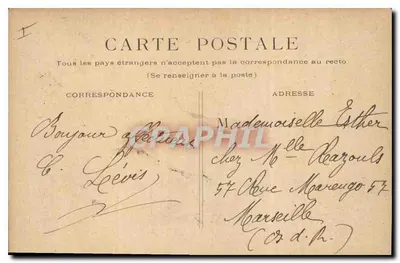 I
CARTE POSTALE
Tous les pays étrangers n'acceptent pas la correspondance au recto
(Se renseigner à la poste)
CORRESPONDANCE
ADRESSE
Bonjour
Lévis
Mademoiselle Esther
chez Melle Razouls
57 Rue Marengo 57
Marseille
(B. d. R.)
CPAPHIL